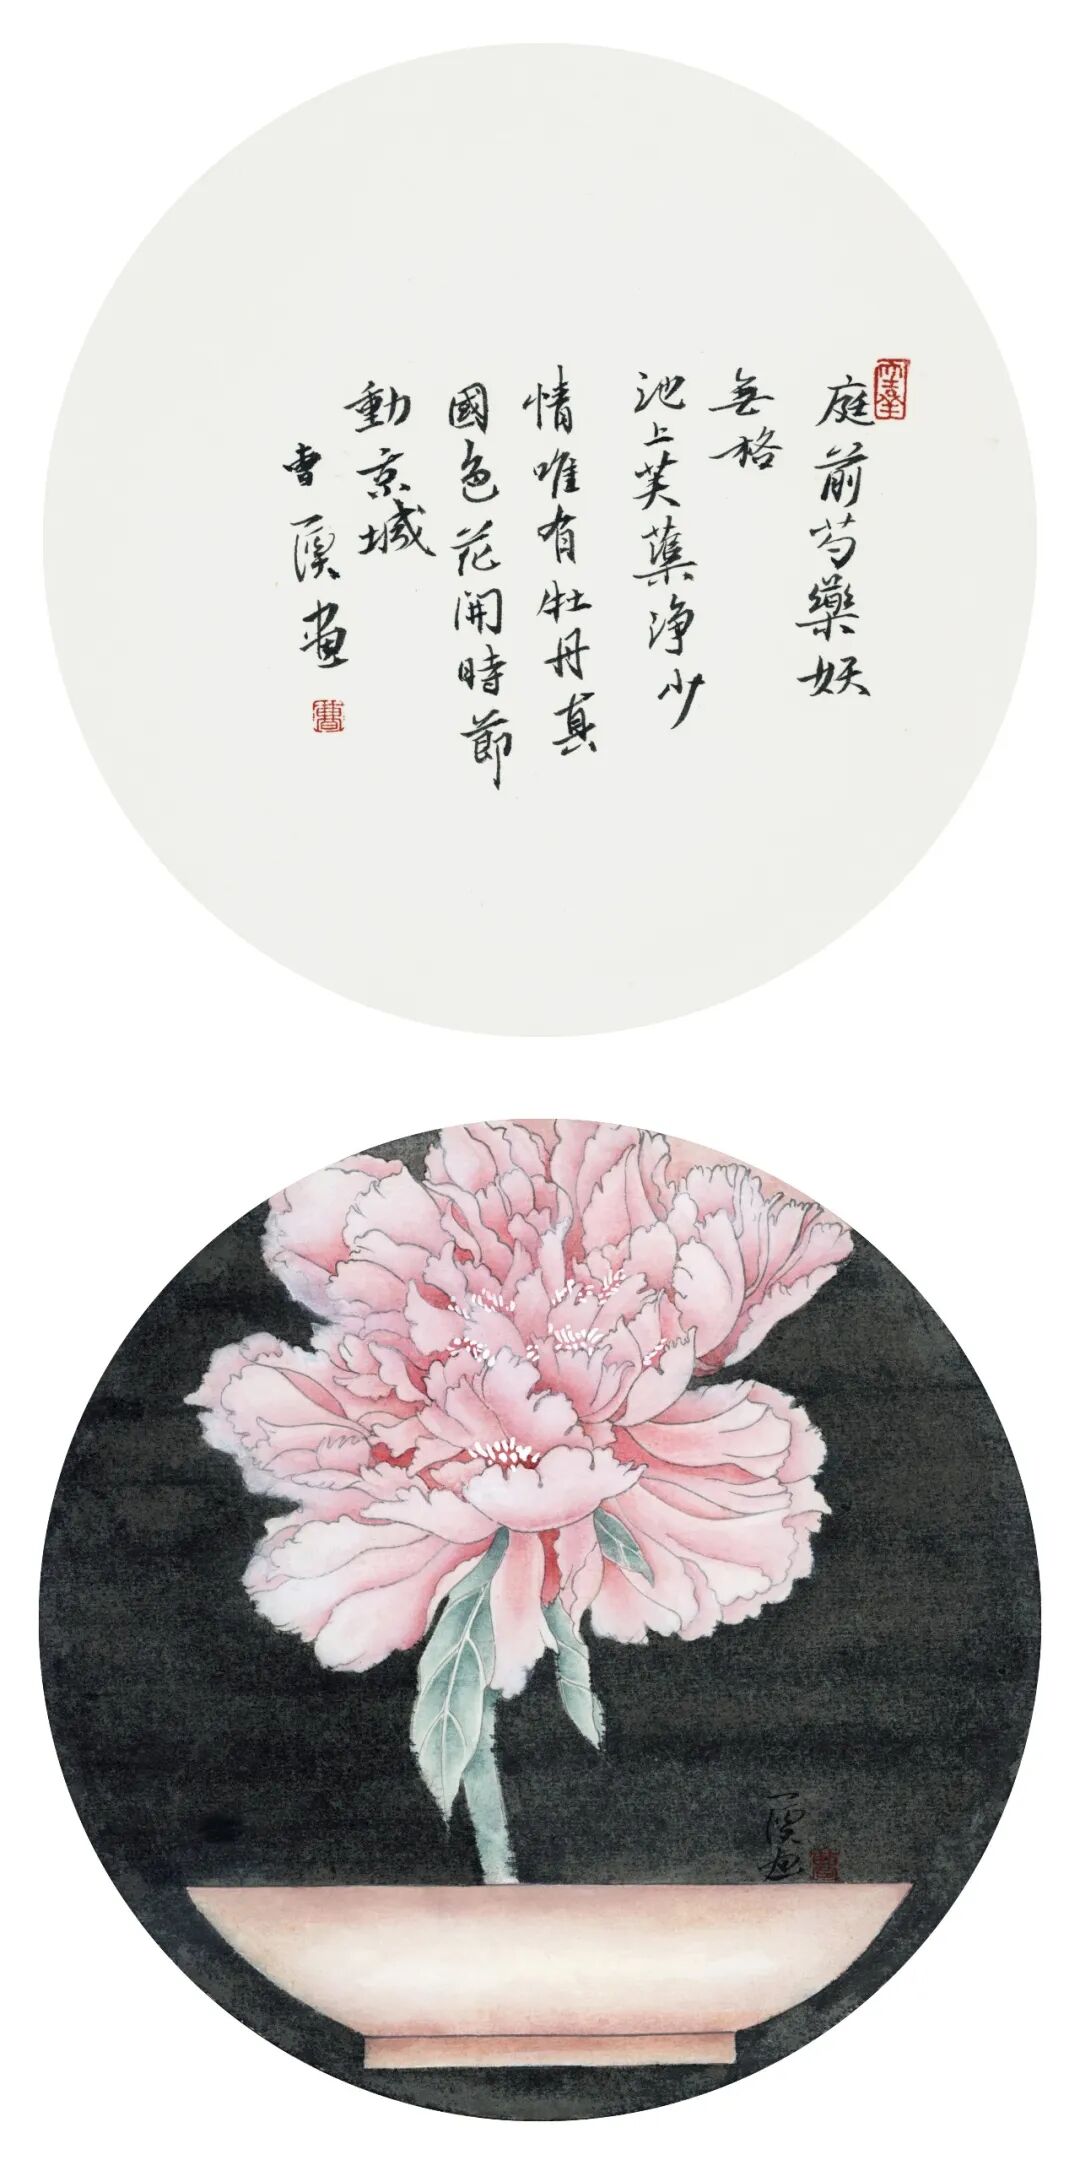 庭前芍藥妖
無格
池上芙蕖淨少
情唯有牡丹真
國色花開時節
動京城
曹一溪畫
曹
一溪畫
曹